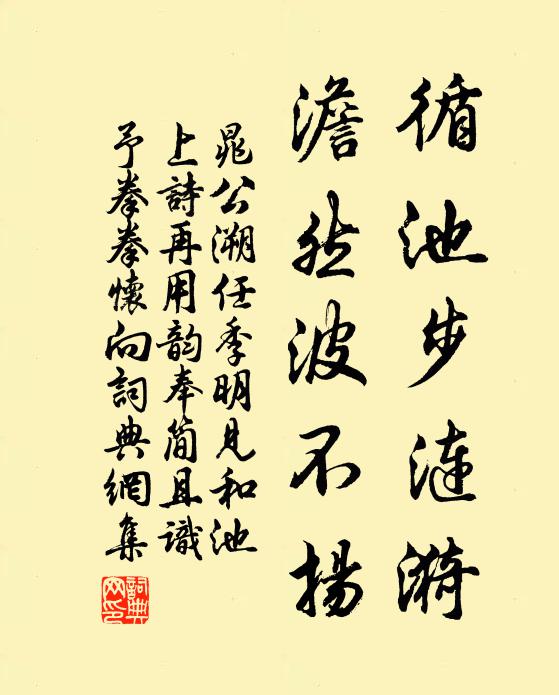 循池步涟漪
澹然波不揚
晁公溯任季明見和池
上詩再用韵奉簡且識
予拳拳懷向詞典網集
詞典網印